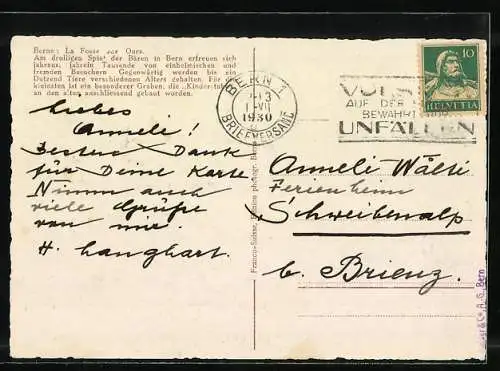 Berne: La Fosse aux Ours.
Am drolligen Spiel der Bären in Bern erfreuen sich
jahraus, jahrein Tausende von einheimischen und
fremden Besuchern Gegenwärtig werden bis ein
Dutzend Tiere verschiedenen Alters gehalten. Für die
kleinsten ist ein besonderer Graben, die „Kinderstube“
an den alten anschliessend gebaut worden.
Liebes
Anneli!
Besten Dank
für Deine Karte
Nimm auch
viele Grüsse
von mir.
H. Langhart.
BERN 1
1930
BRIEFVERSAND
AUF DER
BEWAHRT
UNFÄLLEN
10
HELVETIA
Anneli Wälti
Ferienheim
Schweibenalp
b. Brienz.
Franco-Suisse, Berne
& Co. A. G. Bern